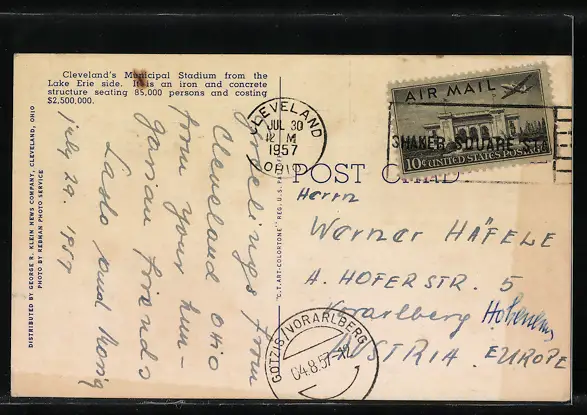 Cleveland's Municipal Stadium from the
Lake Erie side. It is an iron and concrete
structure seating 85,000 persons and costing
$2,500,000.
DISTRIBUTED BY GEORGE R. KLEIN NEWS COMPANY, CLEVELAND, OHIO
PHOTO BY REBMAN PHOTO SERVICE
July 29. 1957
Greetings from
Cleveland Ohio
from your hun-
garian friends
Laslo and
"C.T. ART-COLORTONE" REG. U.S. PAT.
CLEVELAND
JUL 30
12 M
1957
OHIO
POST CARD
AIR MAIL
SHAKER SQUARE STA
10¢ UNITED STATES POSTAGE
Herrn
Werner HÄFELE
A. HOFERSTR. 5
Vorarlberg Hohenems
AUSTRIA. EUROPE
GÖTZIS/VORARLBERG
04.8.57-12